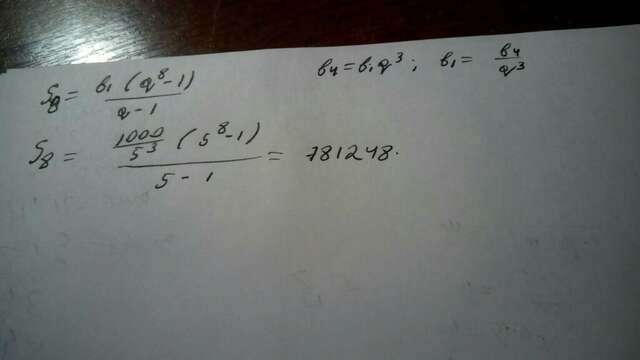 S₈ = в₁ (q⁸-1) / q-1     в₄ = в₁q³; в₁ = в₄ / q³
S₈ = 1000/5³ (5⁸-1) / 5-1 = 781248.